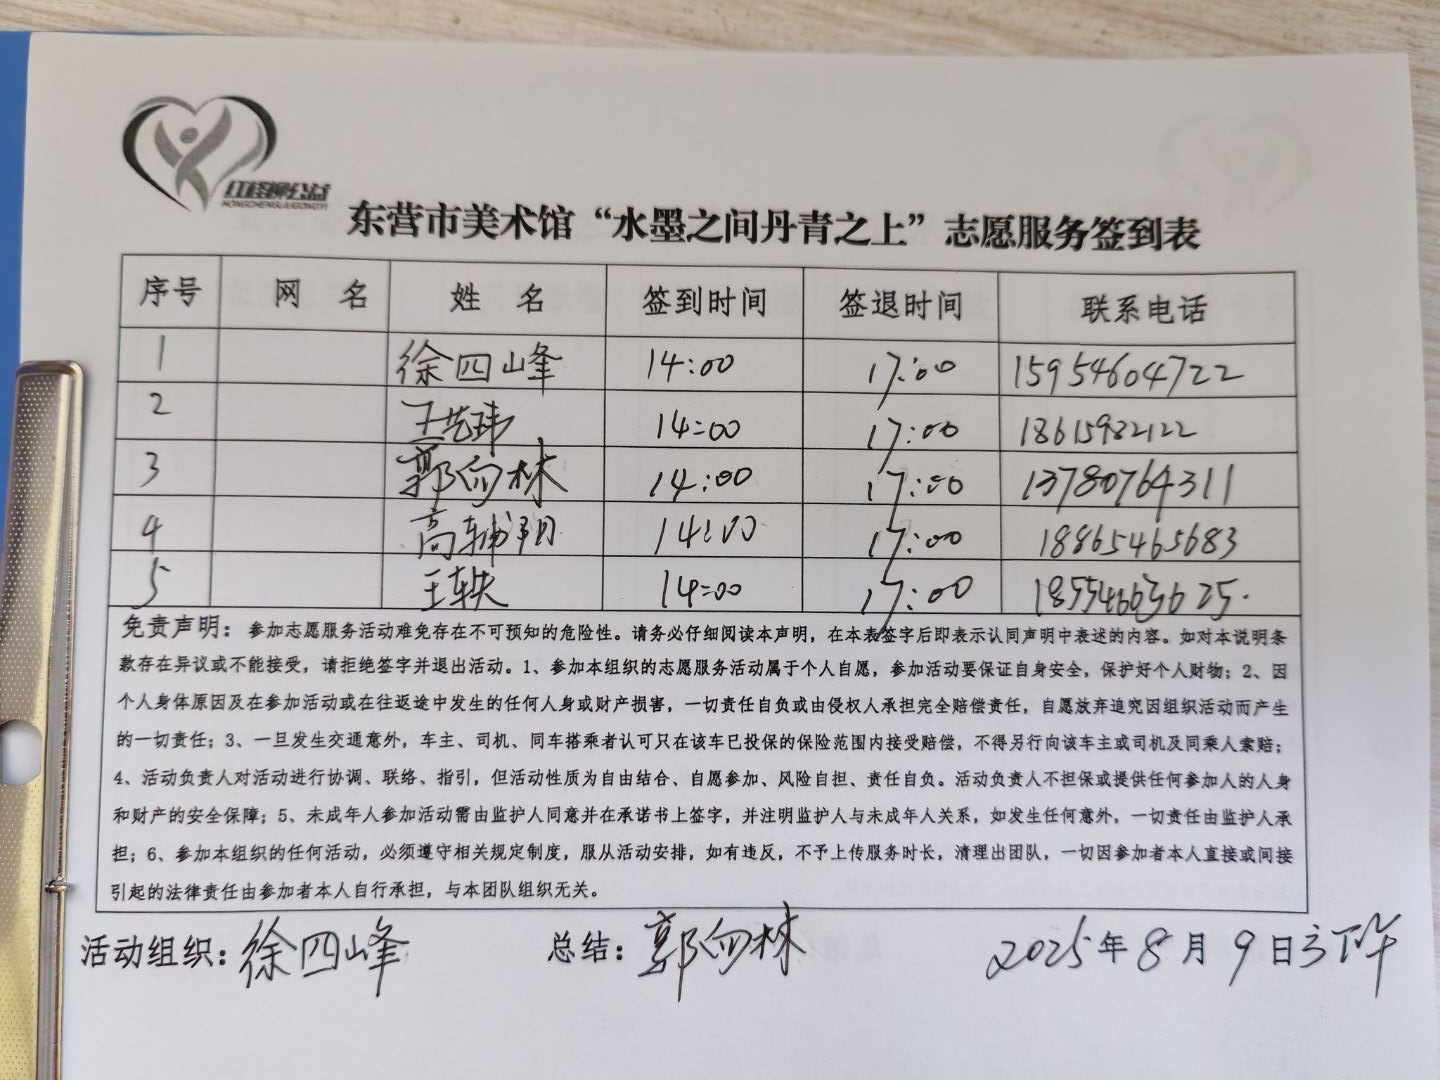 红柽柳公益
HONGCHENGLIUGONGYI
东营市美术馆“水墨之间丹青之上”志愿服务签到表
序号 网 名 姓 名 签到时间 签退时间 联系电话
1 徐四峰 14:00 17:00 15954604722
2 王艺玮 14:00 17:00 18615982122
3 郭向林 14:00 17:00 13780764311
4 高辅阳 14:00 17:00 18865465683
5 王轶 14:00 17:00
免责声明：参加志愿服务活动难免存在不可预知的危险性。请务必仔细阅读本声明，在本表签字后即表示认同声明中表述的内容。如对本说明条
款存在异议或不能接受，请拒绝签字并退出活动。1、参加本组织的志愿服务活动属于个人自愿，参加活动要保证自身安全，保护好个人财物；2、因
个人身体原因及在参加活动或在往返途中发生的任何人身或财产损害，一切责任自负或由侵权人承担完全赔偿责任，自愿放弃追究因组织活动而产生
的一切责任；3、一旦发生交通意外，车主、司机、同车搭乘者认可只在该车已投保的保险范围内接受赔偿，不得另行向该车主或司机及同乘人索赔；
4、活动负责人对活动进行协调、联络、指引，但活动性质为自由结合、自愿参加、风险自担、责任自负。活动负责人不担保或提供任何参加人的人身
和财产的安全保障；5、未成年人参加活动需由监护人同意并在承诺书上签字，并注明监护人与未成年人关系，如发生任何意外，一切责任由监护人承
担；6、参加本组织的任何活动，必须遵守相关规定制度，服从活动安排，如有违反，不予上传服务时长，清理出团队，一切因参加者本人直接或间接
引起的法律责任由参加者本人自行承担，与本团队组织无关。
活动组织：徐四峰 总结：郭向林 2025年8月9日下午